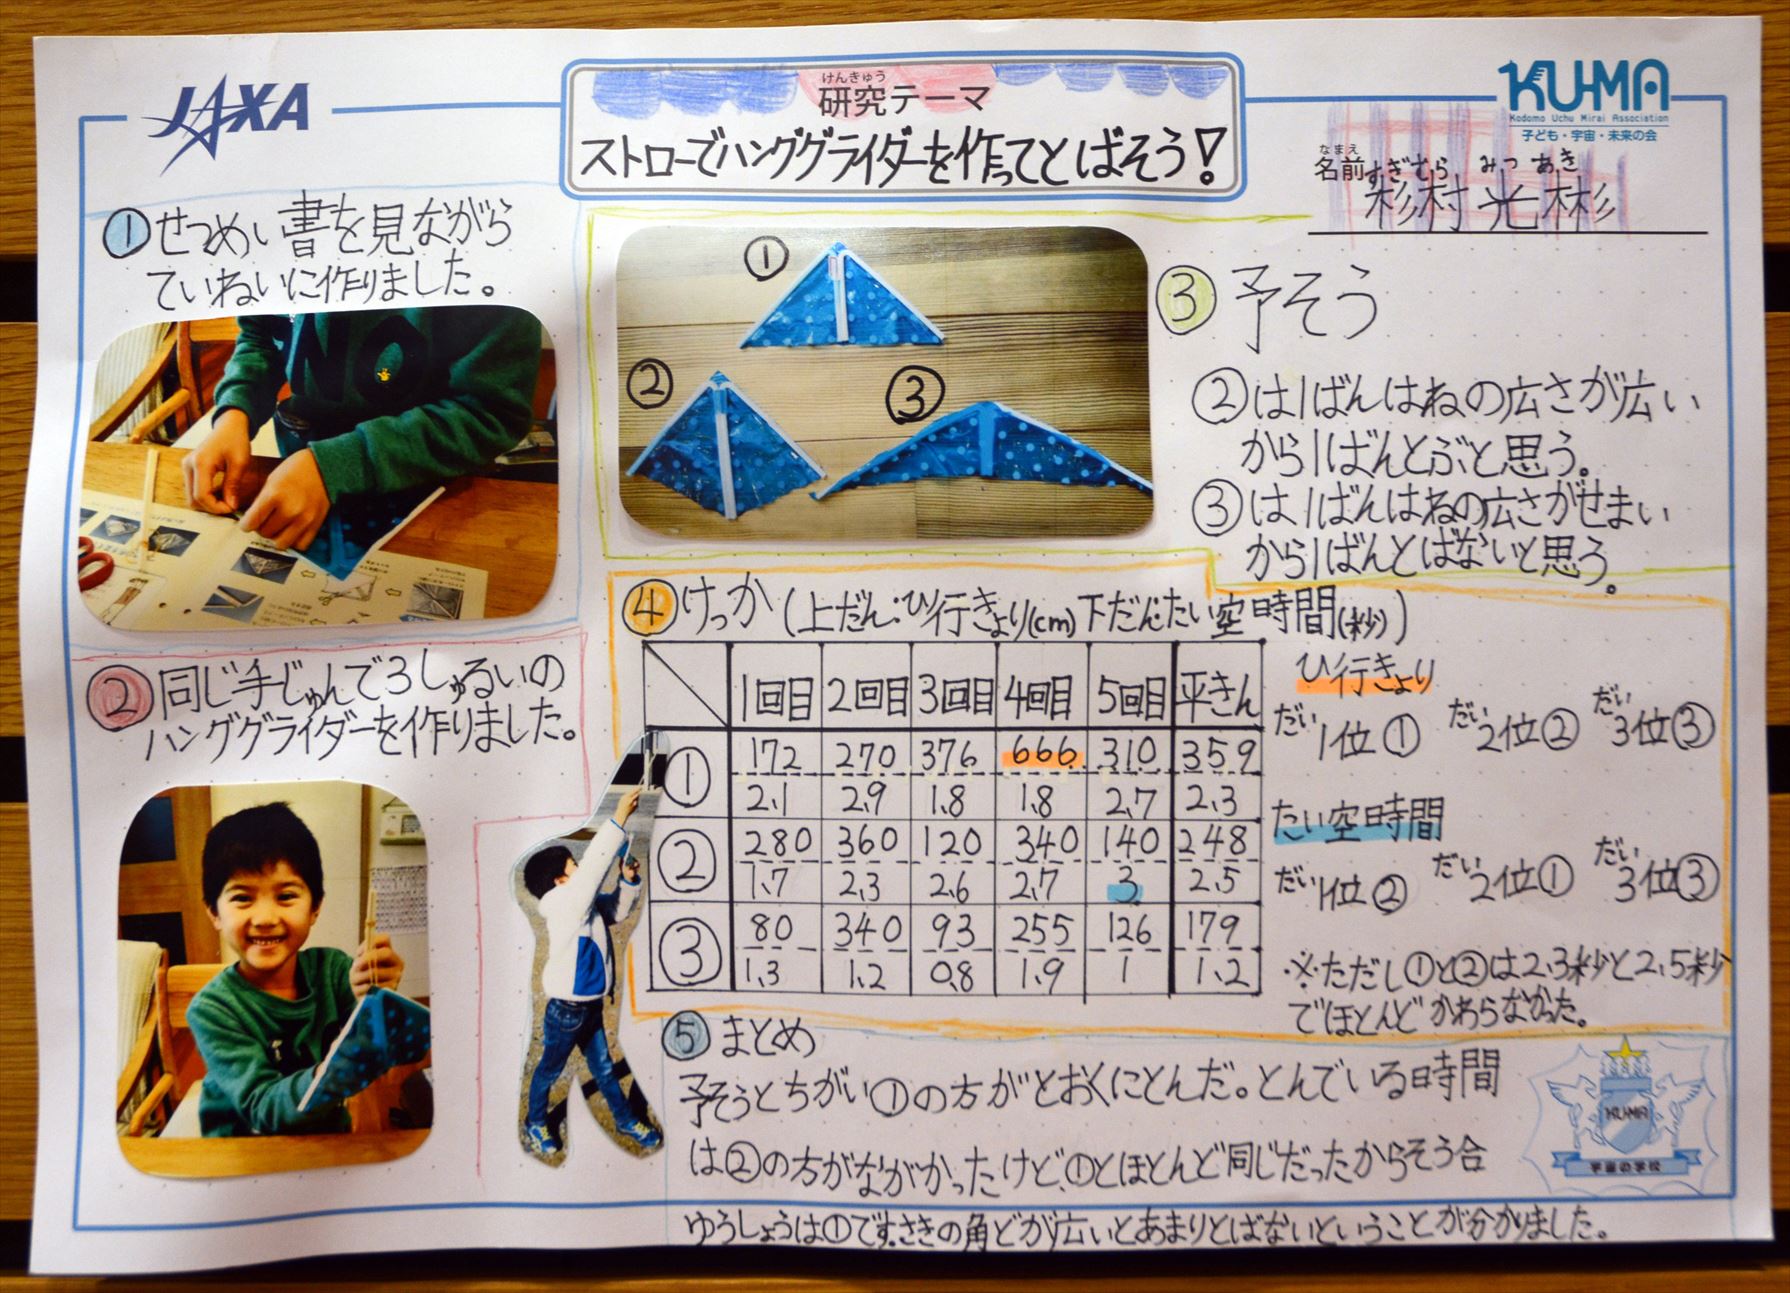 JAXA
けんきゅう
研究テーマ
ストローでハンググライダーを作ってとばそう!
KU-MA
Kodomo Uchu Mirai Association
子ども・宇宙・未来の会
なまえ
名前
すぎむら みつ あき
杉村 光彬
① せつめい書を見ながら
ていねいに作りました。
② 同じ手じゅんで3しゅるいの
ハンググライダーを作りました。
①
②
③
③ 予そう
②は1ばんはねの広さが広い
から1ばんとぶと思う。
③は1ばんはねの広さがせまい
から1ばんとばないと思う。
④ けっか(上だん:ひ行きょり(cm)下だん:たい空時間(秒))
1回目 2回目 3回目 4回目 5回目 平きん
① 172 270 376 666 310 359
2.1 2.9 1.8 1.8 2.7 2.3
② 280 360 120 340 140 248
1.7 2.3 2.6 2.7 3 2.5
③ 80 340 93 255 126 179
1.3 1.2 0.8 1.9 1 1.2
ひ行きょり
だい だい だい
1位① 2位② 3位③
たい空時間
だい だい だい
1位② 2位① 3位③
※ただし①と②は2.3秒と2.5秒
でほとんどかわらなかった。
⑤ まとめ
予そうとちがい①の方がとおくにとんだ。とんでいる時間
は②の方がながかったけど、①とほとんど同じだったからそう合
ゆうしょうは①です。さきの角どが広いとあまりとばないということが分かりました。
KU-MA
宇宙の学校